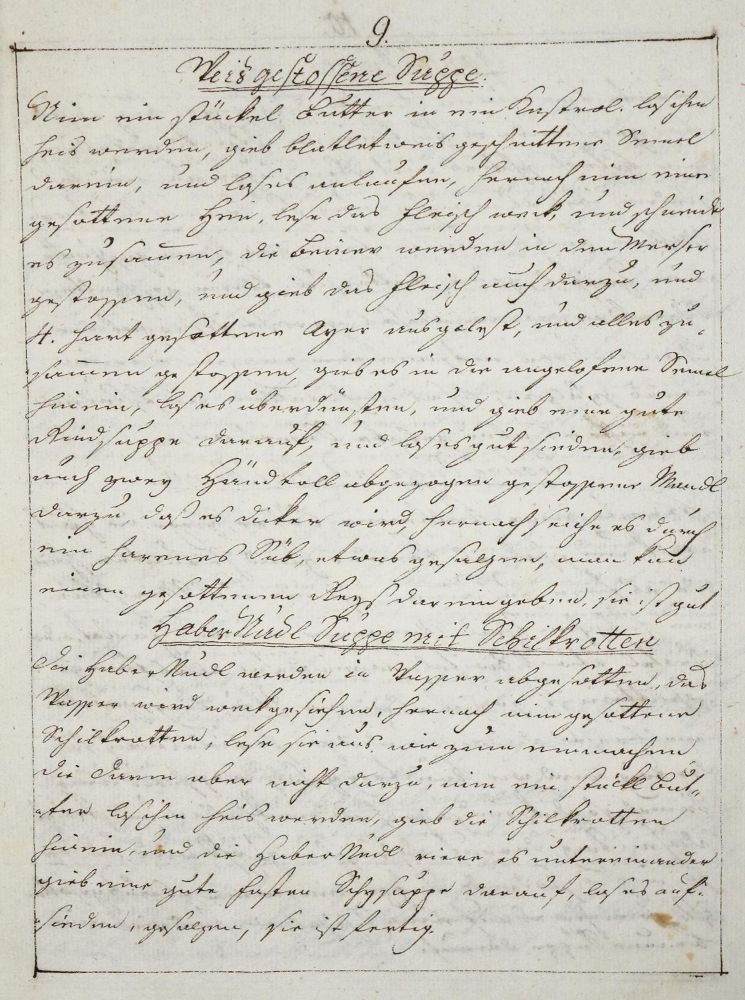 9.
Weis gestossene Suppe.
Nim ein stückel Butter in ein Kastrol. las ihn
heis werden, gieb blatletweis geschnittene Semel
darein, und las es anlaufen, hernach nim eine
gesottene Hen, lese das fleisch weck, und schneide
es zusamen, die beiner werden in den Merser
gestossen, und gieb das fleisch auch darzu, und
4. hart gesottene Ayer ausgelest, und alles zu„
samen gestossen, gieb es in die angelofene Semel
hinein, las es überdünsten, und gieb eine gute
Rindsuppe darauf, und las es gut sieden, gieb
auch zwey Händvoll abgezogen gestossene Mandl
darzu, daß es dicker wird, hernach seiche es durch
ein harenes Süb, etwas gesalzen, man kan
einen gesottenen Reys darein geben, sie ist gut
Haber Nudl Suppe mit Schilkrotten
Die Haber Nudl werden in Wasser abgesotten, das
Wasser wird weckgesiehen, hernach nim gesottene
Schilkrotten, lese sie aus, wie zum einmachen
die Därm aber nicht darzu, nim ein stückl But„
„ter las ihn heis werden, gieb die Schilkrotten
hinein, und die Haber Nudl riere es untereinander
gieb eine gute fasten Schüsuppe darauf, las es auf„
sieden, gesalzen, sie ist fertig.